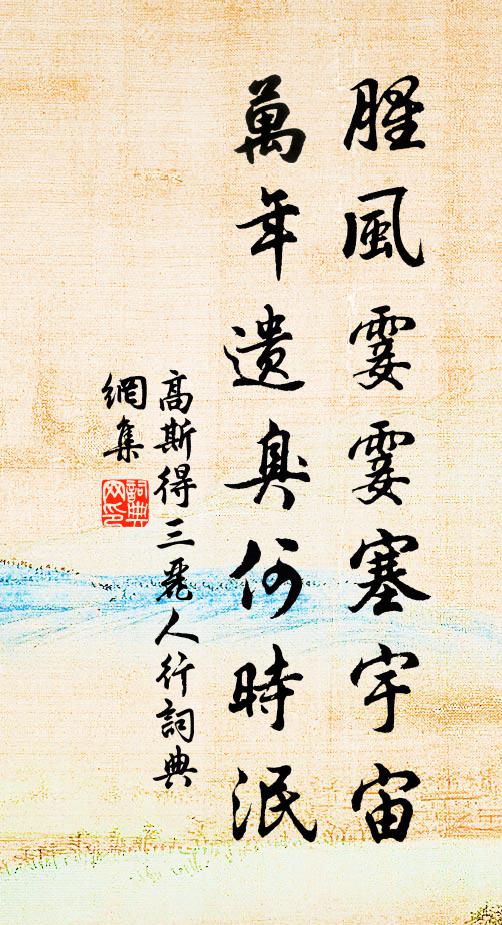 腥風霎霎塞宇宙
萬年遺臭何時泯
高斯得三麗人行詞典
網集
詞典
网印